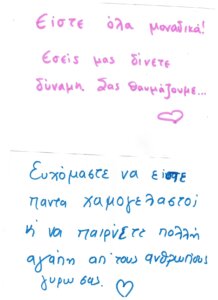 Είστε όλα μοναδικά!
Εσείς μας δίνετε
δύναμη. Σας θαυμάζουμε...
Ευχόμαστε να είστε
παντα χαμογελαστοί
ή να παιρνετε πολλή
αγάπη απ' τους ανθρωπους
γυρω σας.